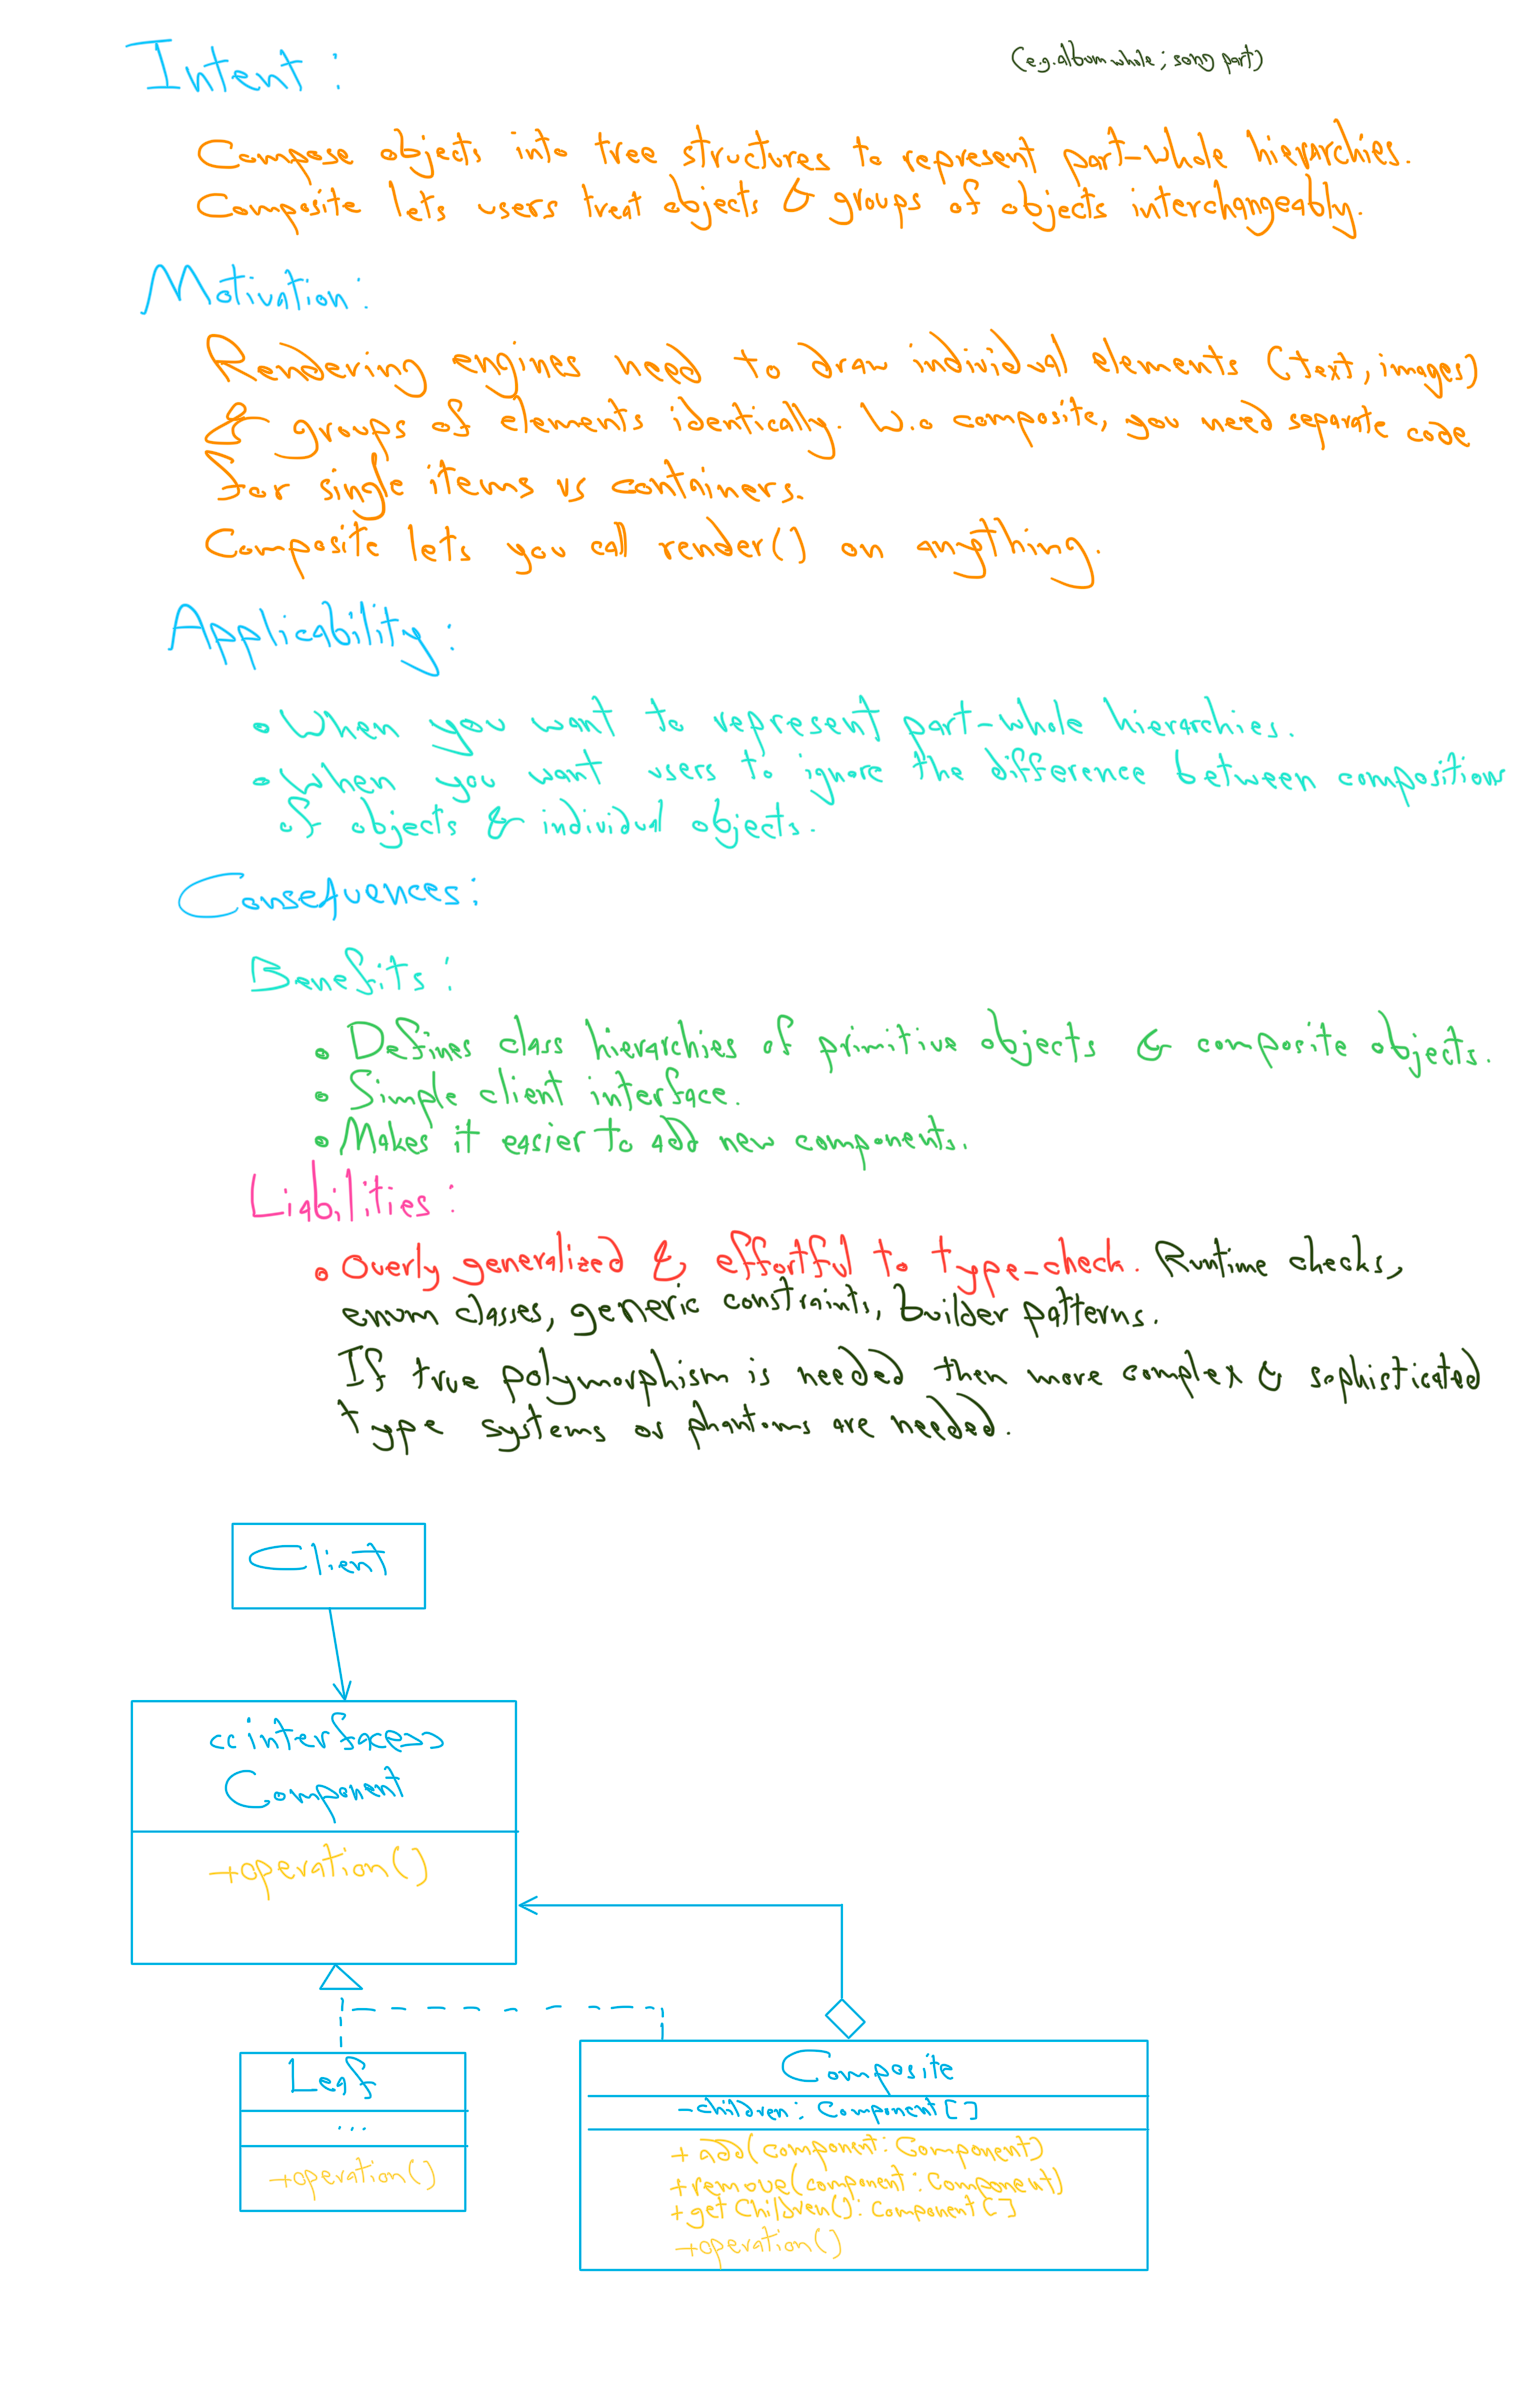 (e.g. album whole; song part)
Intent:
Compose objects into tree structures to represent part-whole hierarchies.
Composite lets users treat objects & groups of objects interchangeably.
Motivation:
Rendering engines need to draw individual elements (text, images)
& groups of elements identically. W.o composite, you need separate code
for single items vs containers.
Composite lets you call render() on anything.
Applicability:
• When you want to represent part-whole hierarchies.
• When you want users to ignore the difference between compositions
of objects & individual objects.
Consequences:
Benefits:
• Defines class hierarchies of primitive objects & composite objects.
• Simple client interface.
• Makes it easier to add new components.
Liabilities:
• Overly generalized & effortful to type-check. Runtime checks,
enum classes, generic constraints, builder patterns.
If true polymorphism is needed then more complex & sophisticated
type systems or phantoms are needed.
Client
<<interface>>
Component
+operation()
Leaf
...
+operation()
Composite
-children: Component[]
+add(component: Component)
+remove(component: Component)
+getChildren(): Component[]
+operation()